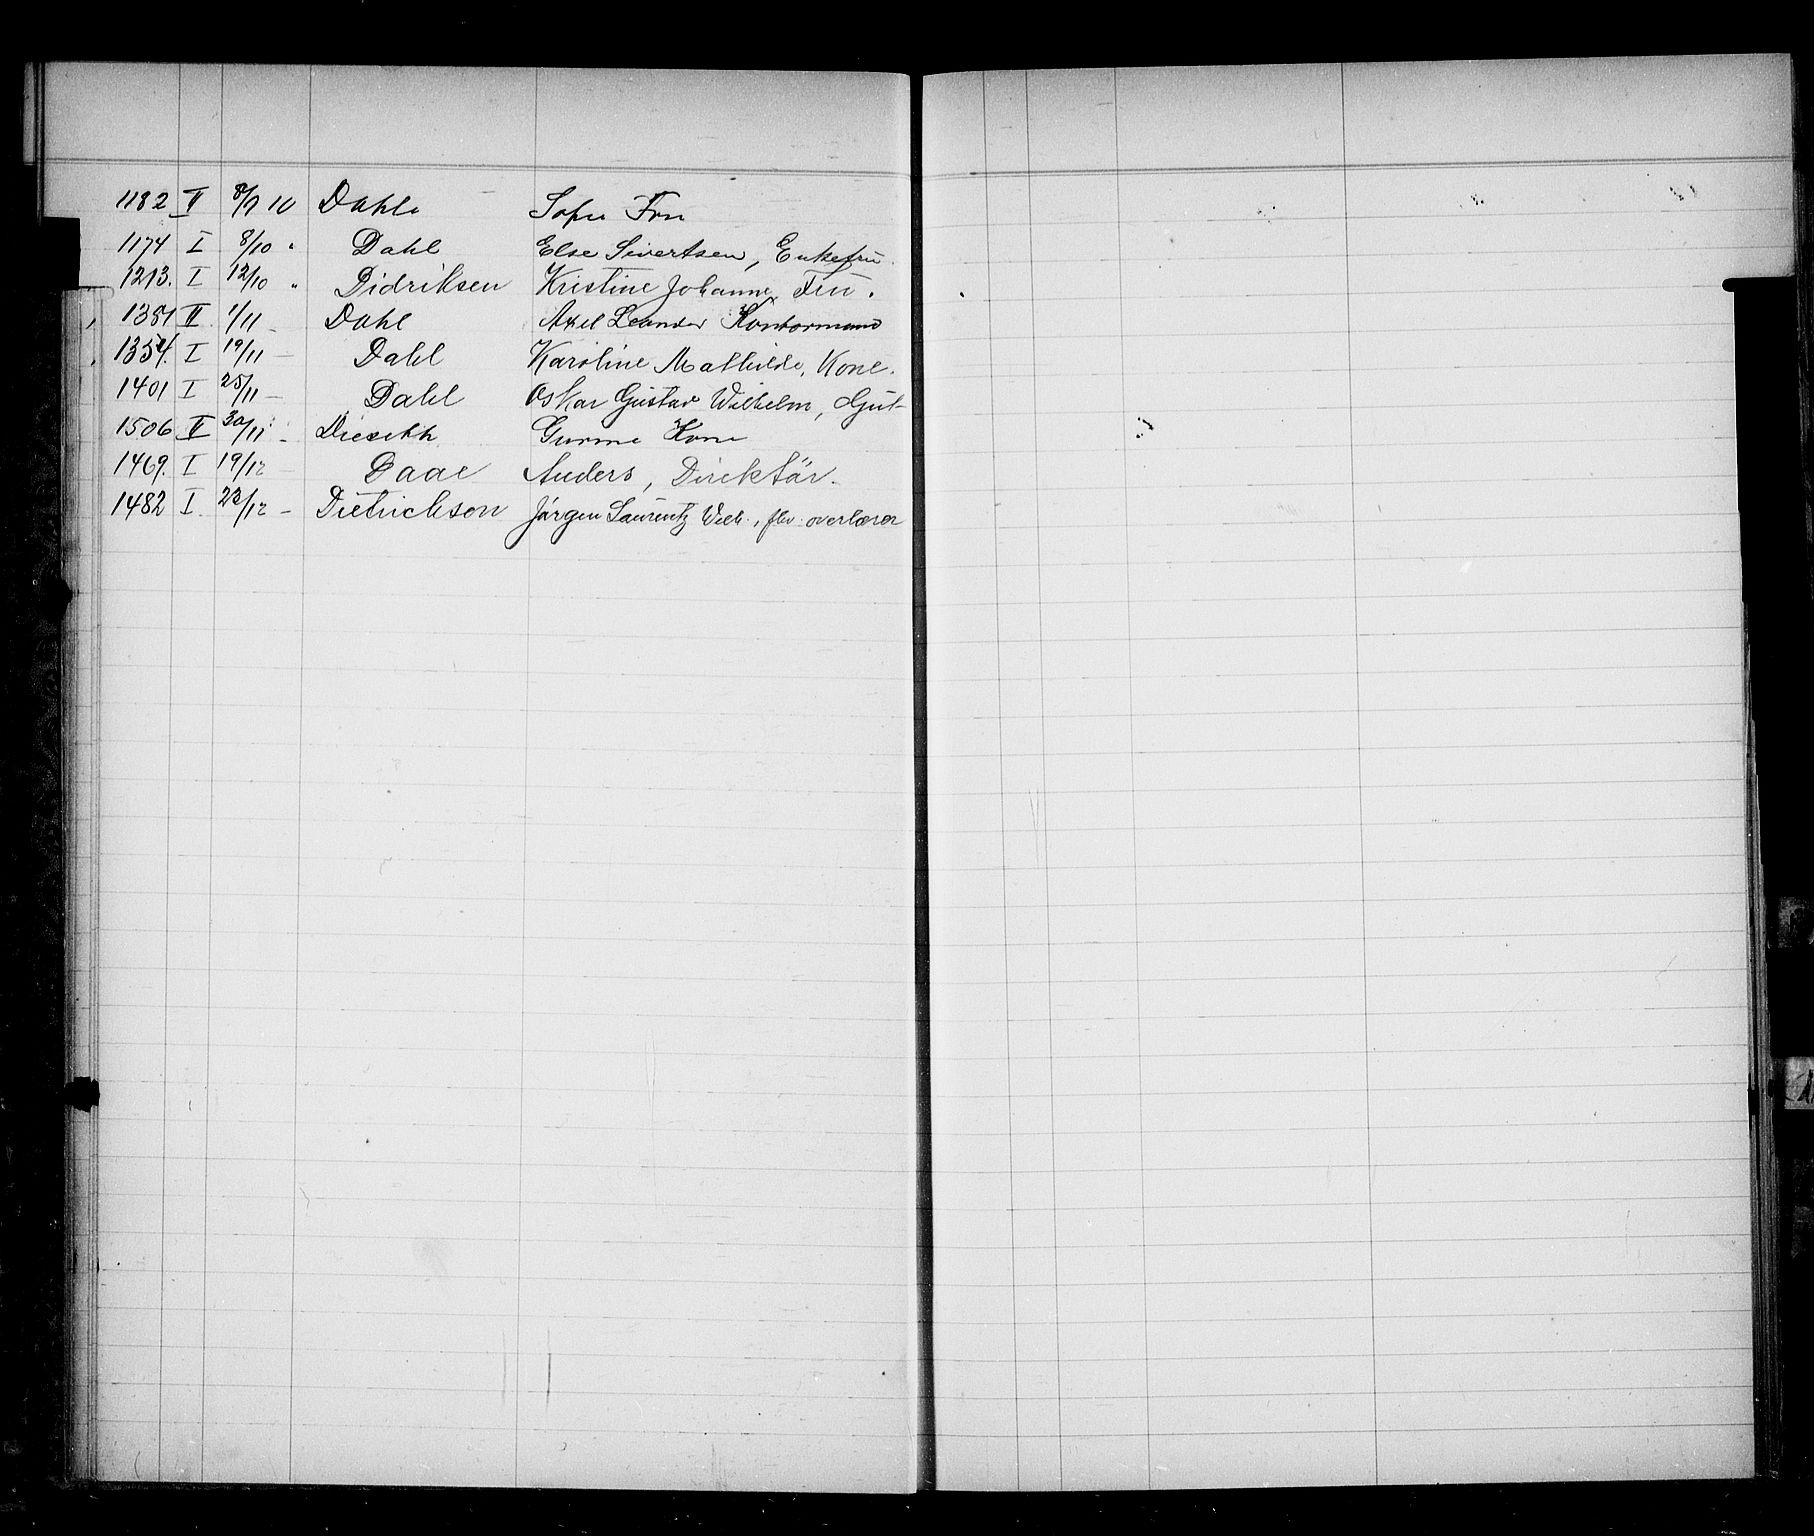 1182 II 8/7 10 Dahl Sofie Fru
1174 I 8/10 " Dahl Else Sivertsen, Enkefru
1213. I 12/10 " Didriksen Kristine Johanne, Fru.
1351 II 1/11 - Dahl Axel Leander Kontormand
1354. I 19/11 - Dahl Karoline Mathilde, Kone.
1401 I 25/11 - Dahl Oskar Gustav Wilhelm, Gut
1506 II 30/11 - Kone
1469. I 19/12 - Daae Anders, Direktör.
1482 I. 23/12 - Dietrichson Jörgen Laurentz Wilh., fhv. overlærer